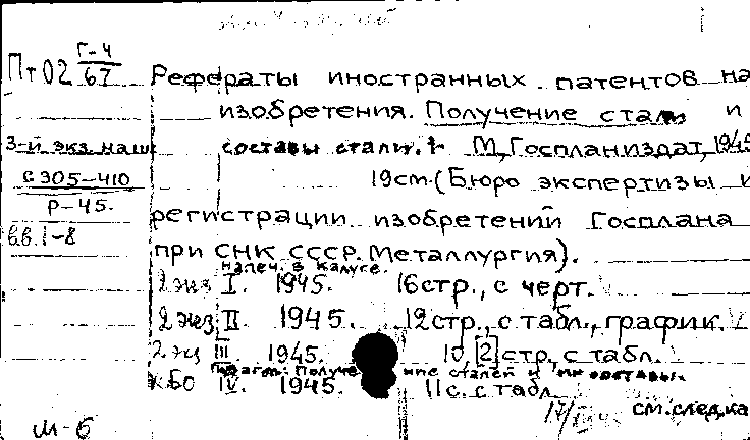 Пт02 Г-4/67
Рефераты иностранных патентов на
изобретения. Получение стали и
3-й экз. наш
составы стали. М, Госпланиздат, 1945
с 305-410
Р-45.
19см. (Бюро экспертизы и
регистрации изобретений Госплана
вв. 1-8
при СНК СССР. Металлургия).
напеч. в Калуге.
2экз I. 1945. 16стр., с черт.
2экз II. 1945. 12стр., с табл., график.
2экз III. 1945. 10, [2] стр. с табл.
ние сталей и
кБО IV. 1945. 11с. с табл.
см. след. ка
м-б